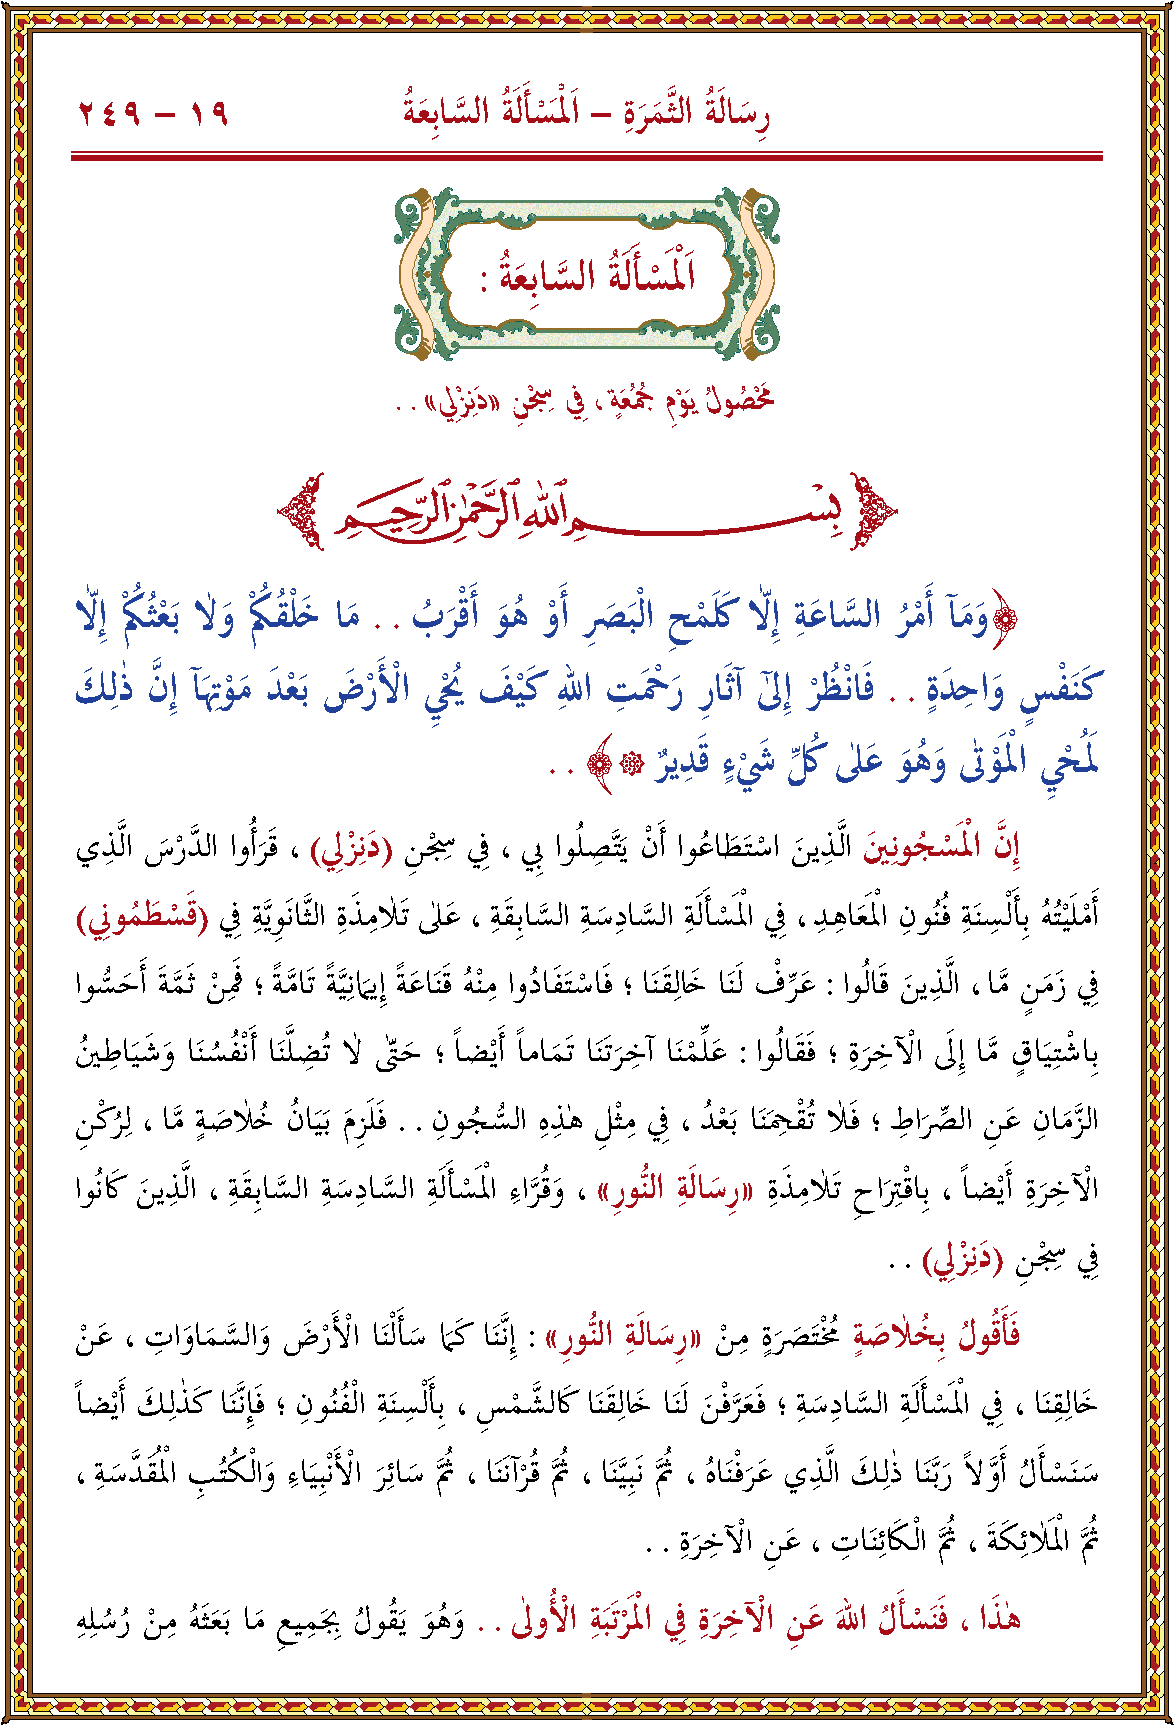 رِسَالَةُ الثَّمَرَةِ – اَلْمَسْأَلَةُ السَّابِعَةُ ١٩ – ٢٤٩
اَلْمَسْأَلَةُ السَّابِعَةُ :
مَحْصُولُ يَوْمِ جُمُعَةٍ ، فِي سِجْنِ «دَنِزْلِي» . .
بِسْمِ ٱللهِ ٱلرَّحْمٰنِ ٱلرَّحِيمِ
﴿وَمَآ أَمْرُ السَّاعَةِ إِلَّا كَلَمْحِ الْبَصَرِ أَوْ هُوَ أَقْرَبُ . . مَا خَلْقُكُمْ وَلَا بَعْثُكُمْ إِلَّا
كَنَفْسٍ وَاحِدَةٍ . . فَانْظُرْ إِلَىٓ آثَارِ رَحْمَتِ اللهِ كَيْفَ يُحْيِي الْأَرْضَ بَعْدَ مَوْتِهَآ إِنَّ ذٰلِكَ
لَمُحْيِي الْمَوْتٰى وَهُوَ عَلٰى كُلِّ شَيْءٍ قَدِيرٌ ۞﴾ . .
إِنَّ الْمَسْجُونِينَ الَّذِينَ اسْتَطَاعُوا أَنْ يَتَّصِلُوا بِي ، فِي سِجْنِ (دَنِزْلِي) ، قَرَأُوا الدَّرْسَ الَّذِي
أَمْلَيْتُهُ بِأَلْسِنَةِ فُنُونِ الْمَعَاهِدِ ، فِي الْمَسْأَلَةِ السَّادِسَةِ السَّابِقَةِ ، عَلٰى تَلَامِذَةِ الثَّانَوِيَّةِ فِي (قَسْطَمُونِي)
فِي زَمَنٍ مَّا ، الَّذِينَ قَالُوا : عَرِّفْ لَنَا خَالِقَنَا ؛ فَاسْتَفَادُوا مِنْهُ قَنَاعَةً إِيمَانِيَّةً تَامَّةً ؛ فَمِنْ ثَمَّةَ أَحَسُّوا
بِاشْتِيَاقٍ مَّا إِلَى الْآخِرَةِ ؛ فَقَالُوا : عَلِّمْنَا آخِرَتَنَا تَمَاماً أَيْضاً ؛ حَتّٰى لَا تُضِلَّنَا أَنْفُسُنَا وَشَيَاطِينُ
الزَّمَانِ عَنِ الصِّرَاطِ ؛ فَلَا تُقْحِمَنَا بَعْدُ ، فِي مِثْلِ هٰذِهِ السُّجُونِ . . فَلَزِمَ بَيَانُ خُلَاصَةٍ مَّا ، لِرُكْنِ
الْآخِرَةِ أَيْضاً ، بِاقْتِرَاحِ تَلَامِذَةِ «رِسَالَةِ النُّورِ» ، وَقُرَّاءِ الْمَسْأَلَةِ السَّادِسَةِ السَّابِقَةِ ، الَّذِينَ كَانُوا
فِي سِجْنِ (دَنِزْلِي) . .
فَأَقُولُ بِخُلَاصَةٍ مُخْتَصَرَةٍ مِنْ «رِسَالَةِ النُّورِ» : إِنَّنَا كَمَا سَأَلْنَا الْأَرْضَ وَالسَّمَاوَاتِ ، عَنْ
خَالِقِنَا ، فِي الْمَسْأَلَةِ السَّادِسَةِ ؛ فَعَرَّفْنَ لَنَا خَالِقَنَا كَالشَّمْسِ ، بِأَلْسِنَةِ الْفُنُونِ ؛ فَإِنَّنَا كَذٰلِكَ أَيْضاً
سَنَسْأَلُ أَوَّلاً رَبَّنَا ذٰلِكَ الَّذِي عَرَفْنَاهُ ، ثُمَّ نَبِيَّنَا ، ثُمَّ قُرْآنَنَا ، ثُمَّ سَائِرَ الْأَنْبِيَاءِ وَالْكُتُبِ الْمُقَدَّسَةِ ،
ثُمَّ الْمَلَائِكَةَ ، ثُمَّ الْكَائِنَاتِ ، عَنِ الْآخِرَةِ . .
هٰذَا ، فَنَسْأَلُ اللهَ عَنِ الْآخِرَةِ فِي الْمَرْتَبَةِ الْأُولٰى . . وَهُوَ يَقُولُ بِجَمِيعِ مَا بَعَثَهُ مِنْ رُسُلِهِ